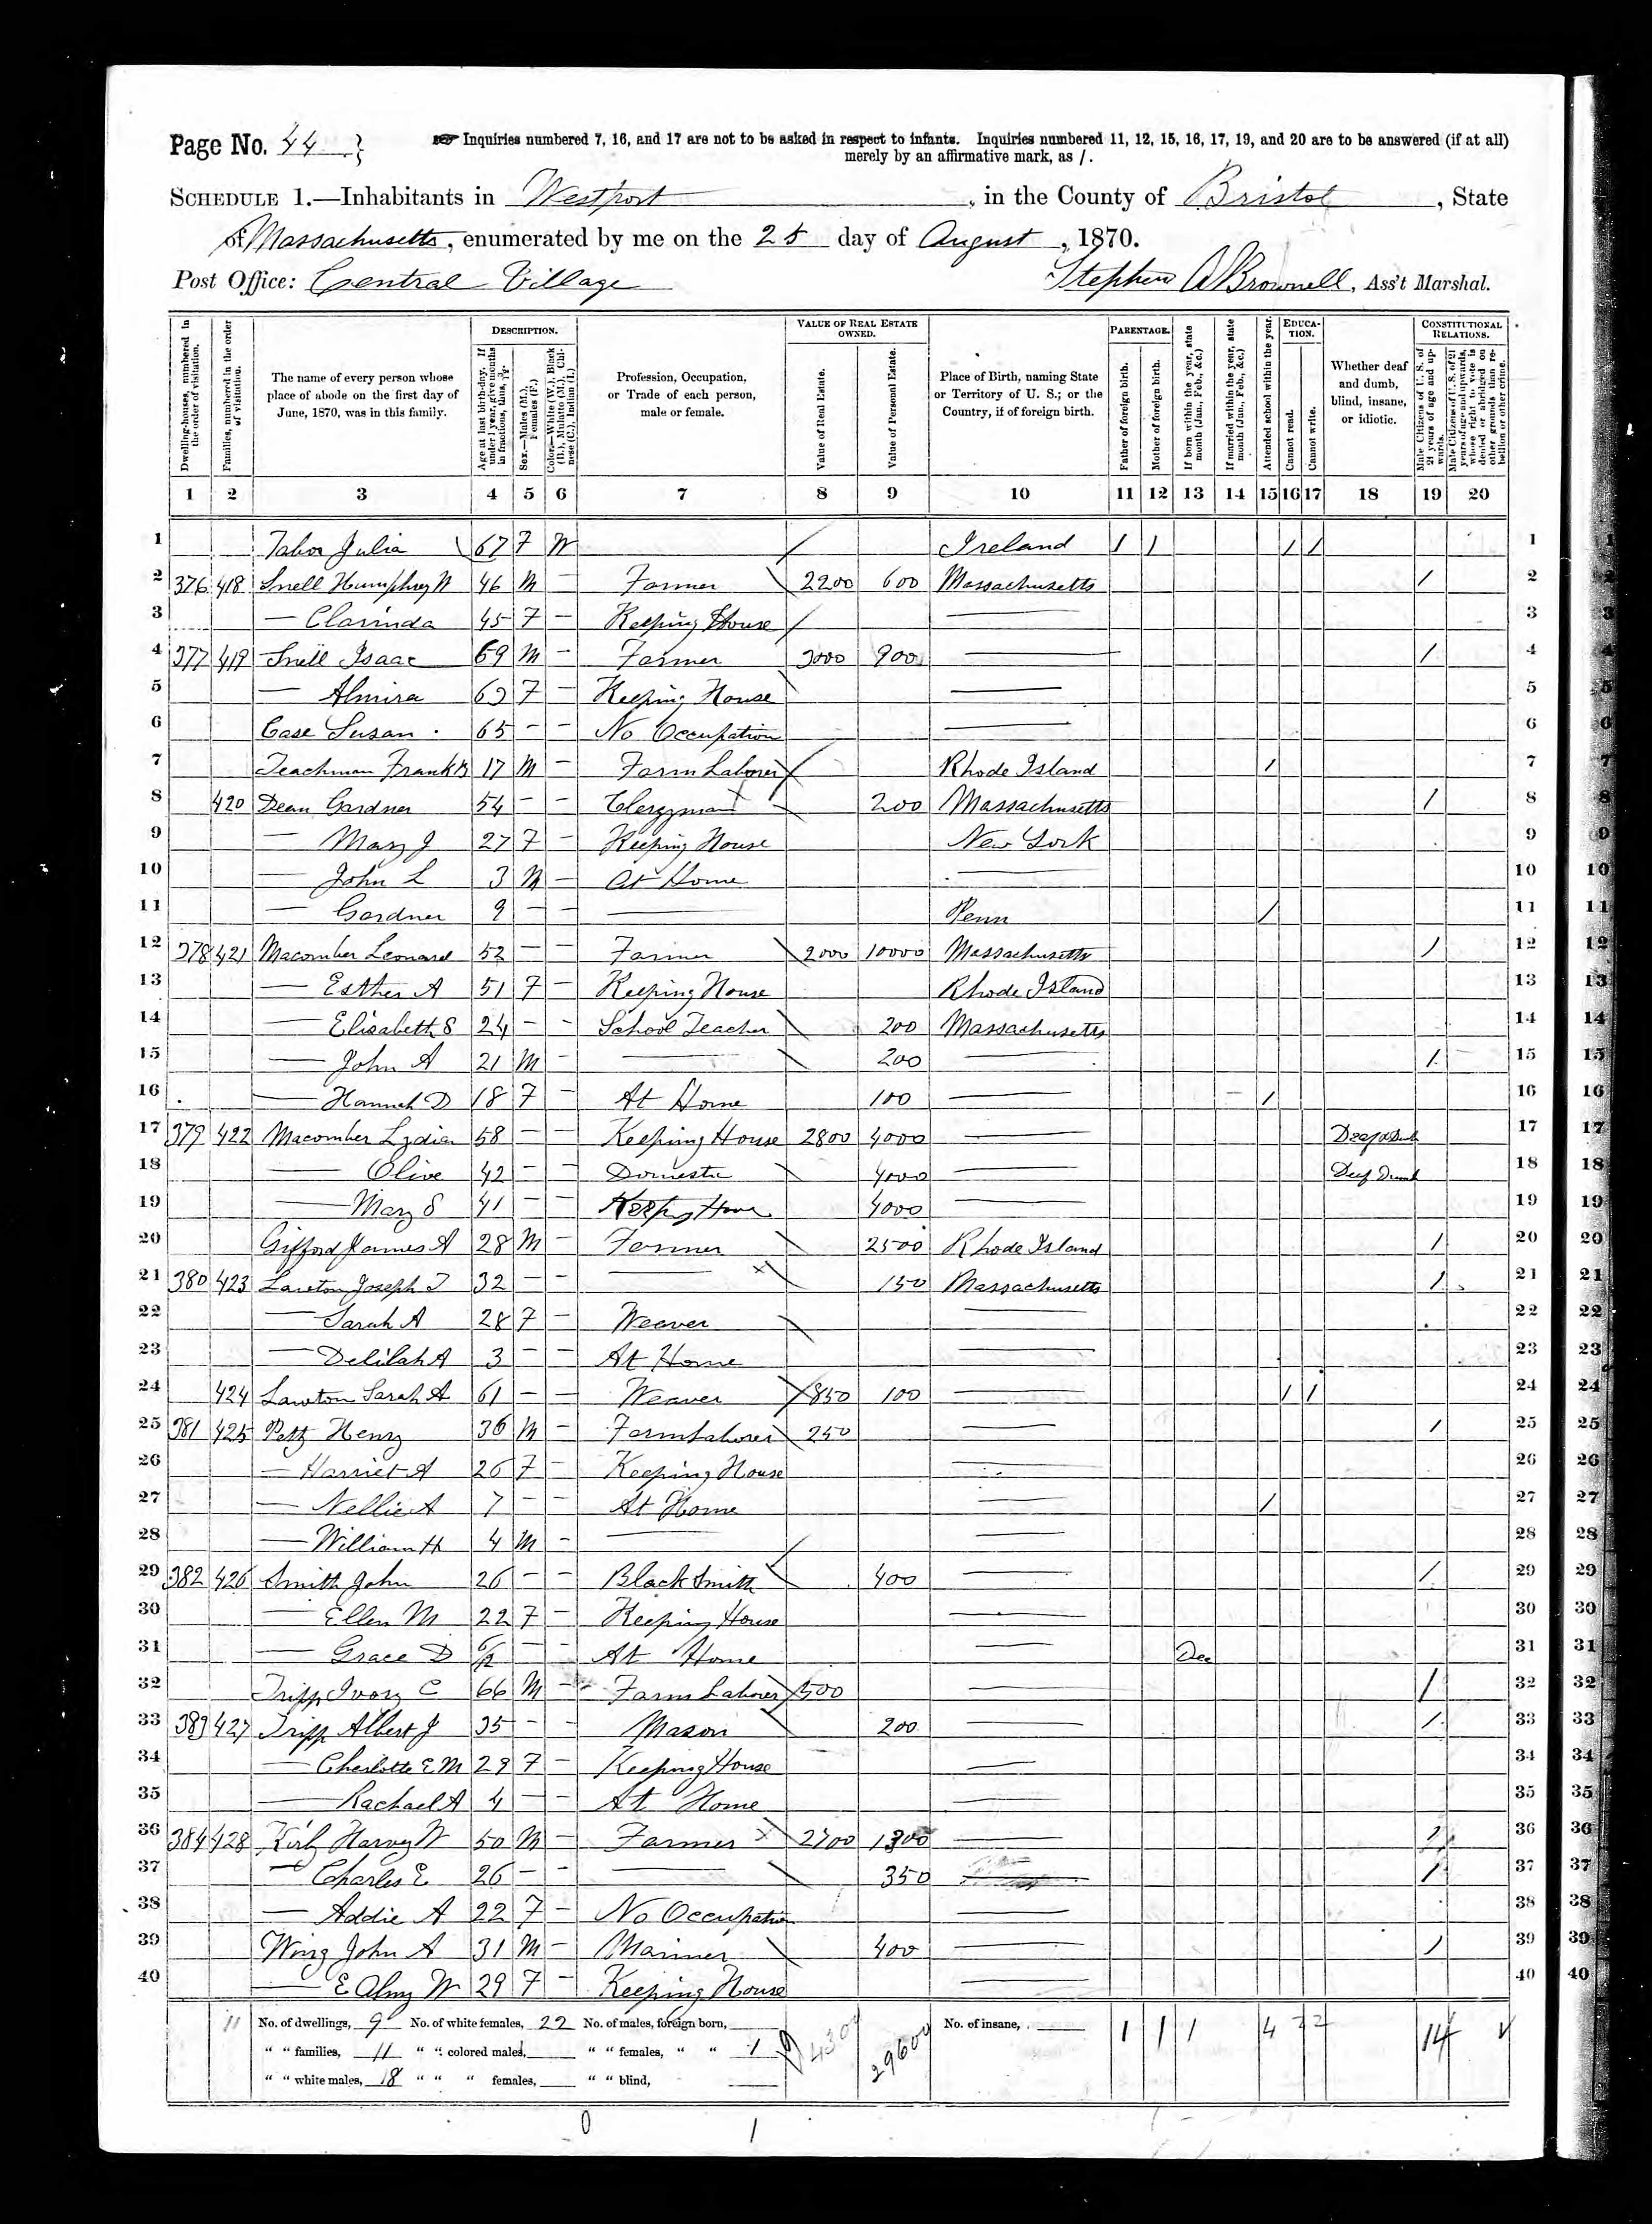 Page No. 44
☞ Inquiries numbered 7, 16, and 17 are not to be asked in respect to infants. Inquiries numbered 11, 12, 15, 16, 17, 19, and 20 are to be answered (if at all)
merely by an affirmative mark, as /.
SCHEDULE 1.—Inhabitants in Westport, in the County of Bristol, State
of Massachusetts, enumerated by me on the 25 day of August, 1870.
Post Office: Central Village Stephen A Brownell, Ass't Marshal.
Dwelling-houses, numbered in the order of visitation.
Families, numbered in the order of visitation.
The name of every person whose place of abode on the first day of June, 1870, was in this family.
DESCRIPTION.
Age at last birth-day. If under 1 year, give months in fractions, thus, 3/12.
Sex.—Males (M.), Females (F.)
Color.—White (W.), Black (B.), Mulatto (M.), Chinese (C.), Indian (I.)
Profession, Occupation, or Trade of each person, male or female.
VALUE OF REAL ESTATE OWNED.
Value of Real Estate.
Value of Personal Estate.
Place of Birth, naming State or Territory of U. S.; or the Country, if of foreign birth.
PARENTAGE.
Father of foreign birth.
Mother of foreign birth.
If born within the year, state month (Jan., Feb., &c.)
If married within the year, state month (Jan., Feb., &c.)
Attended school within the year.
EDUCATION.
Cannot read.
Cannot write.
Whether deaf and dumb, blind, insane, or idiotic.
CONSTITUTIONAL RELATIONS.
Male Citizens of U. S. of 21 years of age and upwards.
Male Citizens of U. S. of 21 years of age and upwards, whose right to vote is denied or abridged on other grounds than rebellion or other crime.
1 2 3 4 5 6 7 8 9 10 11 12 13 14 15 16 17 18 19 20
1 Tabor Julia 67 F W Ireland / / / / 1
2 376 418 Snell Humphrey W 46 M — Farmer 2200 600 Massachusetts / 2
3 — Clarinda 45 F — Keeping House — 3
4 377 419 Snell Isaac 69 M — Farmer 3000 900 — / 4
5 — Almira 63 F — Keeping House — 5
6 Case Susan 65 — — No Occupation — 6
7 Teachman Frank B 17 M — Farm Laborer Rhode Island / 7
8 420 Dean Gardner 54 — — Clergyman 200 Massachusetts / 8
9 — Mary J 27 F — Keeping House New York 9
10 — John L 3 M — At Home — 10
11 — Gardner 9 — — — Penn / 11
12 378 421 Macomber Leonard 52 — — Farmer 2000 10000 Massachusetts / 12
13 — Esther A 51 F — Keeping House Rhode Island 13
14 — Elisabeth S 24 — — School Teacher 200 Massachusetts 14
15 — John A 21 M — — 200 — / 15
16 — Hannah D 18 F At Home 100 — / 16
17 379 422 Macomber Lydia 58 — — Keeping House 2800 4000 — Deaf & Dumb 17
18 — Olive 42 — — Domestic 4000 — Deaf Dumb 18
19 — Mary S 41 — — Keeping House 4000 — 19
20 Gifford James A 28 M — Farmer 2500 Rhode Island / 20
21 380 423 Lawton Joseph T 32 — — — 150 Massachusetts / 21
22 — Sarah A 28 F — Weaver — 22
23 — Delilah A 3 — — At Home — 23
24 424 Lawton Sarah A 61 — — Weaver 850 100 — / / 24
25 381 425 Petty Henry 36 M — Farm Laborer 250 — / 25
26 — Harriet A 26 F — Keeping House — 26
27 — Nellie A 7 — — At Home — / 27
28 — William H 4 M — — — 28
29 382 426 Smith John 26 — — Black Smith 400 — / 29
30 — Ellen M 22 F — Keeping House — 30
31 — Grace D 6/12 — — At Home — Dec 31
32 Tripp Ivory C 66 M — Farm Laborer 500 / 32
33 383 427 Tripp Albert J 35 — — Mason 200 — / 33
34 — Charlotte E M 29 F — Keeping House — 34
35 — Rachael A 4 — — At Home — 35
36 384 428 Kirby Harvey W 50 M — Farmer 2700 1300 — / 36
37 — Charles E 26 — — — 350 — / 37
38 — Addie A 22 F — No Occupation — 38
39 Wing John A 31 M — Mariner 400 — / 39
40 — E Almy W 29 F — Keeping House — 40
11 No. of dwellings, 9 No. of white females, 22 No. of males, foreign born, No. of insane, 1 1 1 4 2 2 14
" " families, 11 " " colored males, " " females, " " 1 14300 29600
" " white males, 18 " " " females, " " blind,
0 1